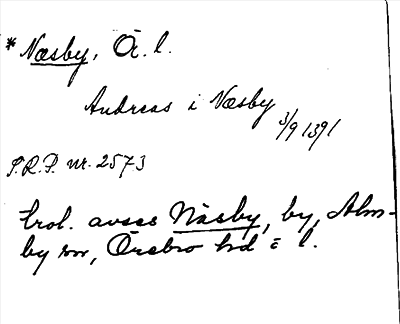 * Næsby, Ö. l.
Andreas i Næsby
3/9 1391
S.R.P. nr. 2573
trol. avses Näsby, by, Alm-
by sn, Örebro hd o l.